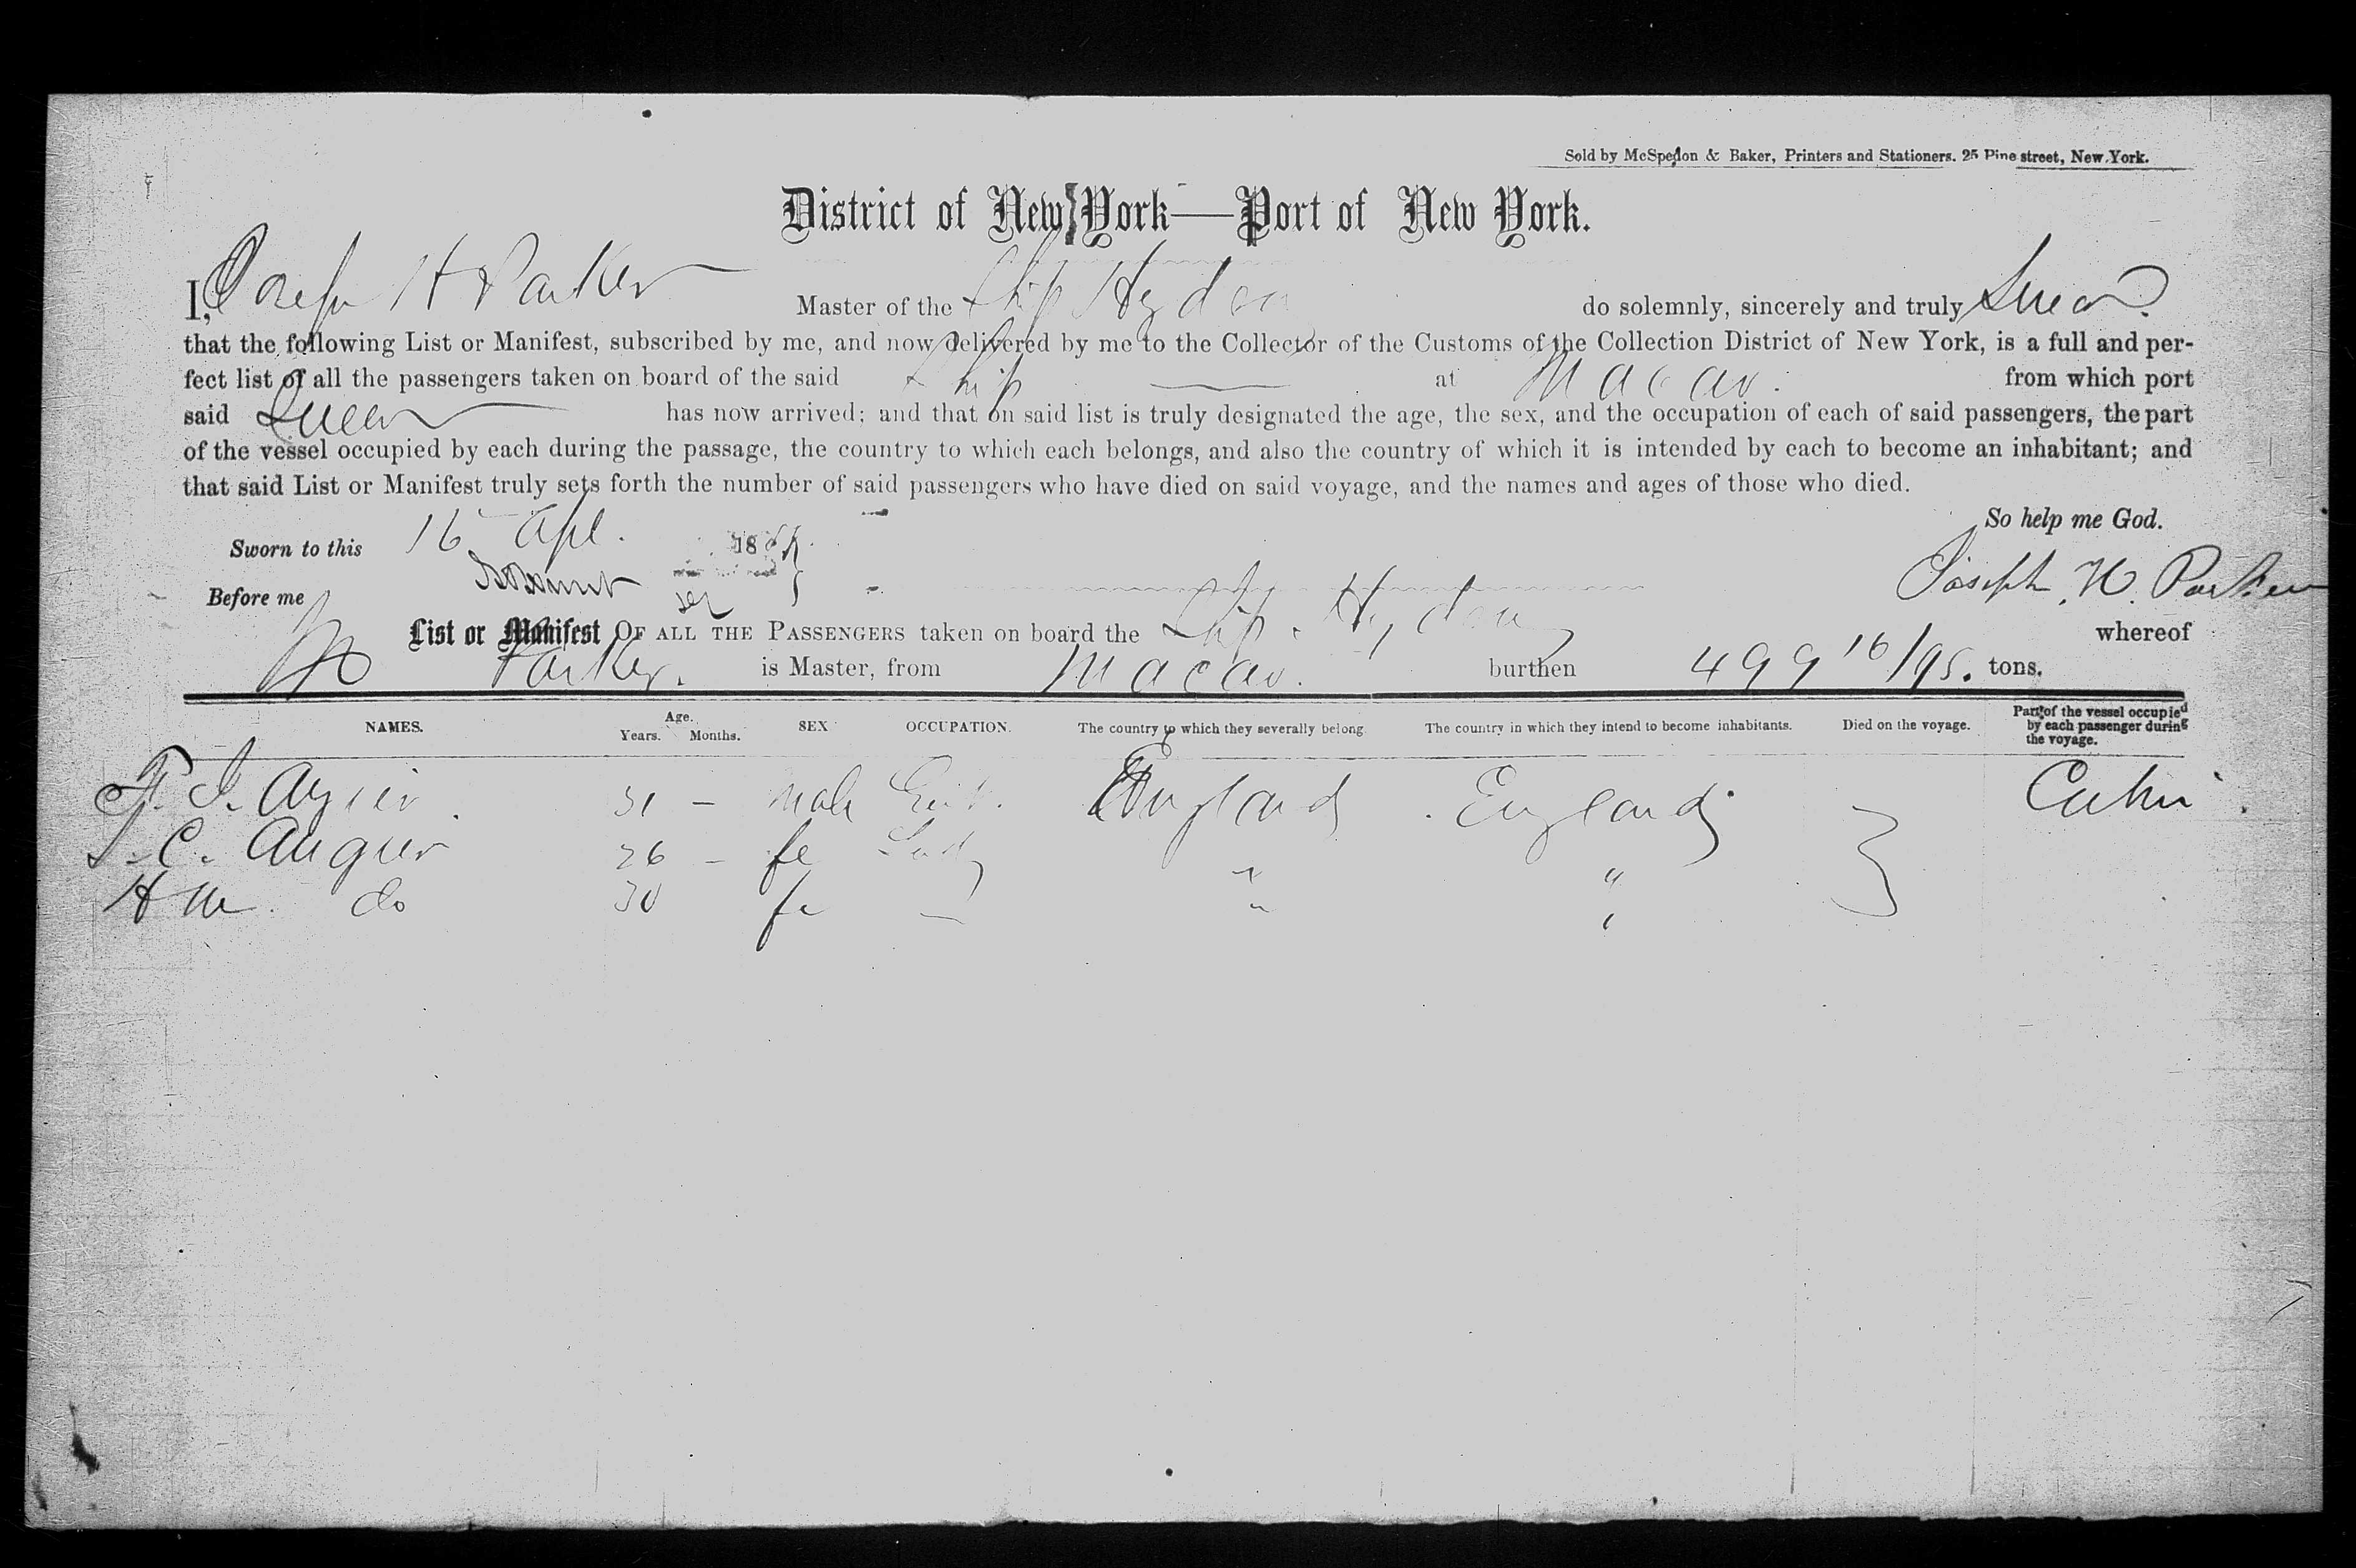 Sold by McSpedon & Baker, Printers and Stationers. 25 Pine street, New York.
District of New York—Port of New York.
I, Joseph H Parker Master of the Ship Hydra do solemnly, sincerely and truly Swear
that the following List or Manifest, subscribed by me, and now delivered by me to the Collector of the Customs of the Collection District of New York, is a full and per-
fect list of all the passengers taken on board of the said Ship at Macao. from which port
said has now arrived; and that on said list is truly designated the age, the sex, and the occupation of each of said passengers, the part
of the vessel occupied by each during the passage, the country to which each belongs, and also the country of which it is intended by each to become an inhabitant; and
that said List or Manifest truly sets forth the number of said passengers who have died on said voyage, and the names and ages of those who died.
So help me God.
Sworn to this 16 Apl. 18
Before me
Joseph H. Parker
List or Manifest OF ALL THE PASSENGERS taken on board the Ship whereof
Parker. is Master, from Macao. burthen 499 16/95. tons.
NAMES. Age. Years. Months. SEX OCCUPATION. The country to which they severally belong The country in which they intend to become inhabitants. Died on the voyage. Part of the vessel occupied by each passenger during the voyage.
F. J. Angier 31 – male Gent. England England Cabin
C. Angier 26 – fe Lady " "
H M. do 30 fe — " "